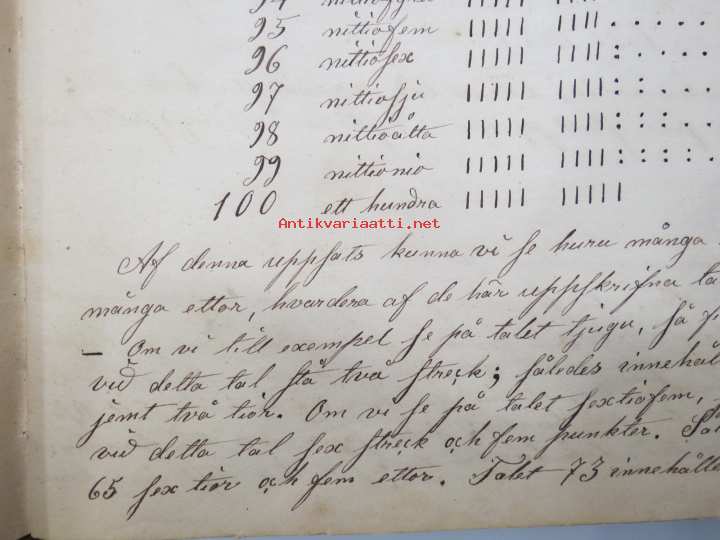 95 nittiofem ||||| ||||.....
96 nittiosex ||||| ||||:....
97 nittiosju ||||| ||||::...
98 nittioåtta ||||| ||||:::..
99 nittionio ||||| ||||::::.
100 ett hundra ||||| |||||
Antikvariaatti.net
Af denna uppsats kunna vi se huru många
många ettor, hvardera af de här uppskrifna ta
– Om vi till exempel se på talet tjugu, så fi
vid detta tal stå två streck; således innehål
jemt två tior. Om vi se på talet sextiofem,
vid detta tal sex streck och fem punkter. Tal
65 sex tior och fem ettor. Talet 73 innehålle